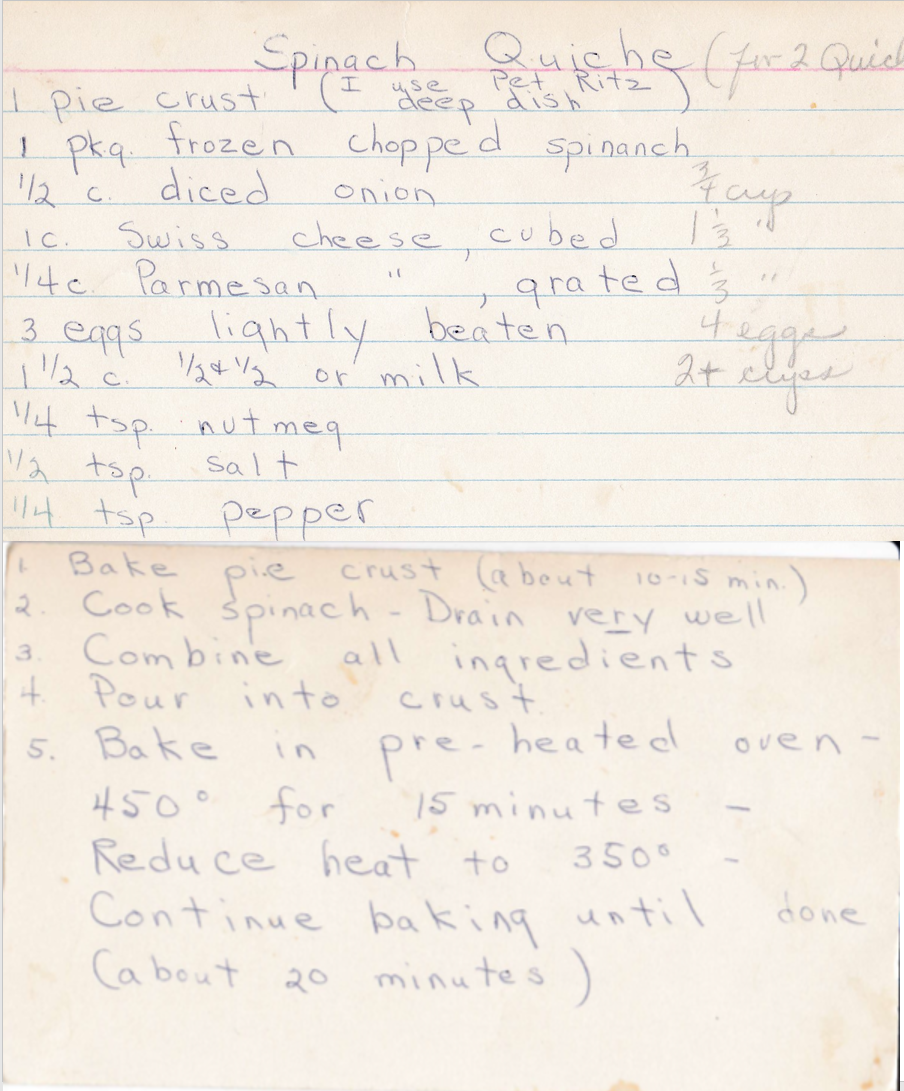 Spinach Quiche (for 2 Quic
1 pie crust (I use Pet Ritz deep dish)
1 pkg. frozen chopped spinanch
1/2 c. diced onion 3/4 cup
1 c. Swiss cheese, cubed 1 1/3 "
1/4 c. Parmesan ", grated 1/3 "
3 eggs lightly beaten 4 eggs
1 1/2 c. 1/2 & 1/2 or milk 2+ cups
1/4 tsp. nutmeg
1/2 tsp. salt
1/4 tsp. pepper
1. Bake pie crust (about 10-15 min.)
2. Cook spinach - Drain very well
3. Combine all ingredients
4. Pour into crust.
5. Bake in pre-heated oven -
450° for 15 minutes -
Reduce heat to 350° -
Continue baking until done
(about 20 minutes)